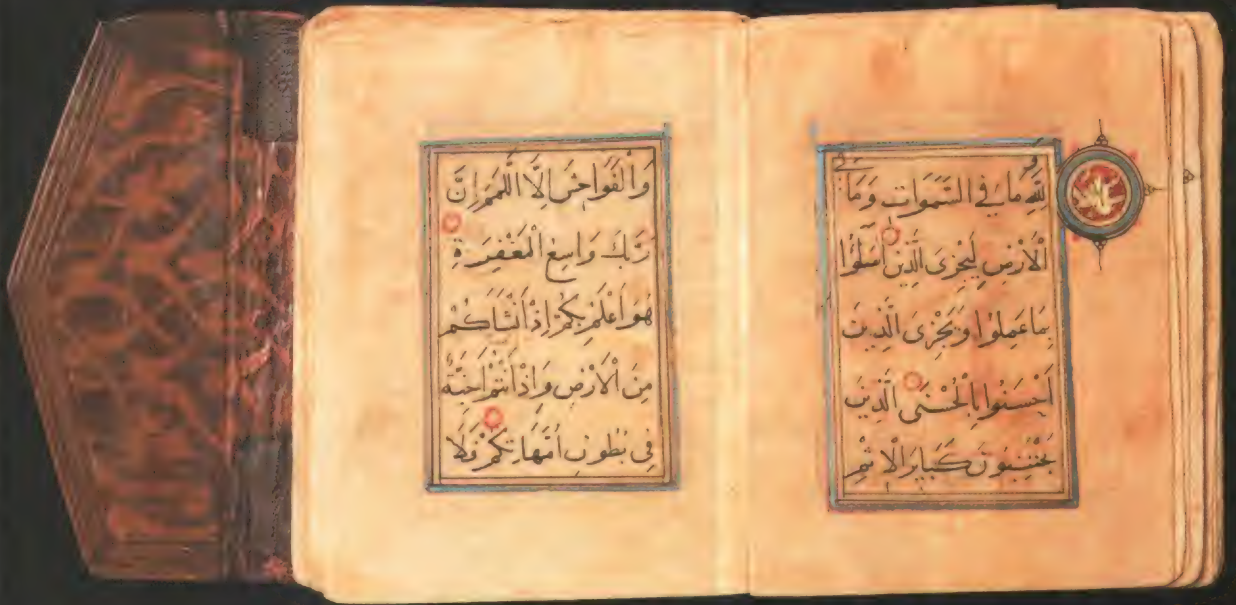 وَلِلَّهِ مَا فِي السَّمَوَاتِ وَمَا فِي
الْأَرْضِ لِيَجْزِيَ الَّذِينَ أَسَاؤُا
بِمَا عَمِلُوا وَيَجْزِيَ الَّذِينَ
أَحْسَنُوا بِالْحُسْنَى الَّذِينَ
يَجْتَنِبُونَ كَبَائِرَ الْإِثْمِ
وَالْفَوَاحِشَ إِلَّا اللَّمَمَ إِنَّ
رَبَّكَ وَاسِعُ الْمَغْفِرَةِ
هُوَ أَعْلَمُ بِكُمْ إِذْ أَنْشَأَكُمْ
مِنَ الْأَرْضِ وَإِذْ أَنْتُمْ أَجِنَّةٌ
فِي بُطُونِ أُمَّهَاتِكُمْ فَلَا